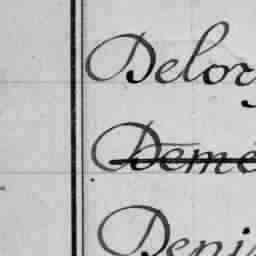 Delor
Deme
Deni